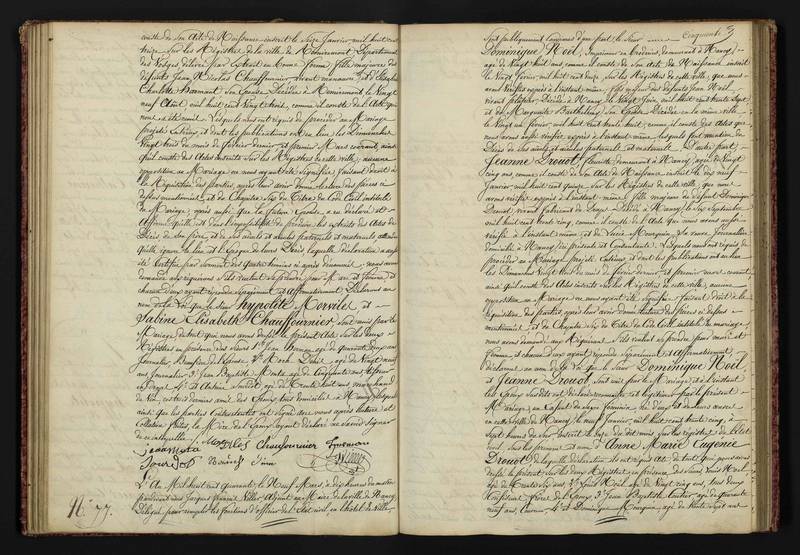 constate de son Acte de Naissance inscrit le Seize Janvier mil huit cent
Sur les Registres de la ville de Remiremont Département
des Vosges délivré par Extrait en bonne forme fille majeure des
défunts Jean Nicolas Chauffournier vivant manœuvre et de
Charlotte son Epouse Décédés à Remiremont le Vingt
neuf Août mil huit cent Vingt trois, comme il conste de l'Acte qui
nous a été remis. Lesquels nous ont requis de procéder au Mariage
projeté entr'eux et dont les publications ont eu lieu les Dimanches
Vingt trois du mois de février dernier et premier Mars courant, ainsi
qu'il conste des Actes inscrits Sur les Registres de cette ville; aucune
opposition au Mariage ne nous ayant été signifiée; faisant droit à
la Réquisition des parties, après leur avoir donné lecture des pièces ci
dessus mentionnées, et du Chapitre Six du Titre du Code Civil intitulé
du Mariage; après aussi que la future Epouse a déclaré et
Affirmé qu'elle est dans l'impossibilité de produire les extraits des Actes de
Décès de son père, et de ses aïeuls et aïeules paternels et maternels attendu
qu'elle ignore le lieu et l'époque de leurs Décès, laquelle déclaration a aussi
été Certifiée par serment des quatre témoins ci après dénommés, nous avons
demandé aux requérants s'ils veulent se prendre pour Mari et femme, et
chacun d'eux ayant répondu séparément et affirmativement Déclarons au
nom de la Loi que le Sieur hypolite Morville, et
Sabine Elisabeth Chauffournier, sont unis par le
Mariage de tout quoi nous avons dressé le présent Acte Sur les deux
Registres en présence des Sieurs 1° Jean âgé de quarante deux ans
Journalier, 2° âgé de Vingt neuf
ans, Journalier 3° Jean Baptiste âgé de Cinquante ans,
4° et Antoine âgé de trente huit ans marchand
de Vin, ces trois derniers amis des Epoux tous domiciliés à Nancy, lesquels
ainsi que les parties Contractantes ont signé avec nous après lecture et
Collation faites, la Mère de l'Epoux ayant déclaré ne savoir signer
de ce interpellée.
Morville Chaufournier
N° 77.
L'An Mil huit cent quarante, le Neuf Mars, à dix heures du matin
pardevant nous Jacques Adjoint au Maire de la ville de Nancy
Délégué pour remplir les fonctions d'officier de l'Etat civil, en l'hôtel de Ville
Cinquante
Sont publiquement comparus d'une part le Sieur
Dominique Noël, Imprimeur en demeurant à Nancy,
âgé de Vingt huit ans, comme il conste de son Acte de Naissance inscrit
le Vingt février mil huit cent onze Sur les Registres de cette ville, que nous
avons vérifié exprès à l'instant même, fils majeur des défunts Jean Noël
vivant Décédé à Nancy le Vingt Juin mil huit cent trente Sept
et de Marguerite Barthélemy Son Epouse Décédée en la même ville
le Vingt un février mil huit cent trente huit, comme il conste des Actes que
nous avons aussi vérifié exprès à l'instant même, lesquels font mention du
Décès de ses aïeuls et aïeules paternels et maternels. D'autre part,
Jeanne Drouot, fleuriste, demeurant à Nancy, âgée de Vingt
cinq ans, comme il conste de son Acte de Naissance inscrit le dix neuf
Janvier mil huit cent quinze Sur les Registres de cette ville, que nous
avons vérifié exprès à l'instant même, fille majeure du défunt Dominique
Drouot, vivant fabricant de Décédé à Nancy le Six Septembre
mil huit cent trente cinq, comme il conste de l'Acte que nous avons aussi
vérifié à l'instant même, et de Lucie Mourquin, Sa veuve, Journalière
domiciliée à Nancy, ici présente et Consentante. Lesquels nous ont requis de
procéder au Mariage projeté entr'eux et dont les publications ont eu lieu
les Dimanches Vingt trois du mois de février dernier et premier mars courant
ainsi qu'il conste des Actes inscrits Sur les Registres de cette ville, aucune
opposition au Mariage ne nous ayant été signifiée; faisant droit à la
Réquisition des parties, après leur avoir donné lecture des pièces ci dessus
mentionnées, et du Chapitre Six du Titre du Code Civil intitulé du mariage,
nous avons demandé aux Requérants S'ils veulent se prendre pour mari et
femme, et chacun d'eux ayant répondu séparément et affirmativement,
déclarons au nom de la Loi que le Sieur Dominique Noël,
et Jeanne Drouot sont unis par le Mariage; et à l'instant
les Epoux susdits ont déclaré reconnaître et légitimer par le présent
Mariage, un Enfant du Sexe féminin, né d'eux et
en cette ville de Nancy, le neuf Janvier mil huit cent trente cinq, à
Sept heures du Soir inscrit le onze du dit mois Sur les registres de l'état
civil, Sous les prénoms et nom Anne Marie Eugénie
Drouot; de laquelle déclaration ils ont requis Acte. De tout quoi nous avons
dressé le présent Sur les deux Registres en présence des Sieurs Noël
âgé de trente Six ans, 2° Noël âgé de Vingt cinq ans, tous deux
frères de l'Epoux, 3° Jean Baptiste âgé de quarante
neuf ans, 4° et Dominique Mourquin, âgé de trente Sept ans